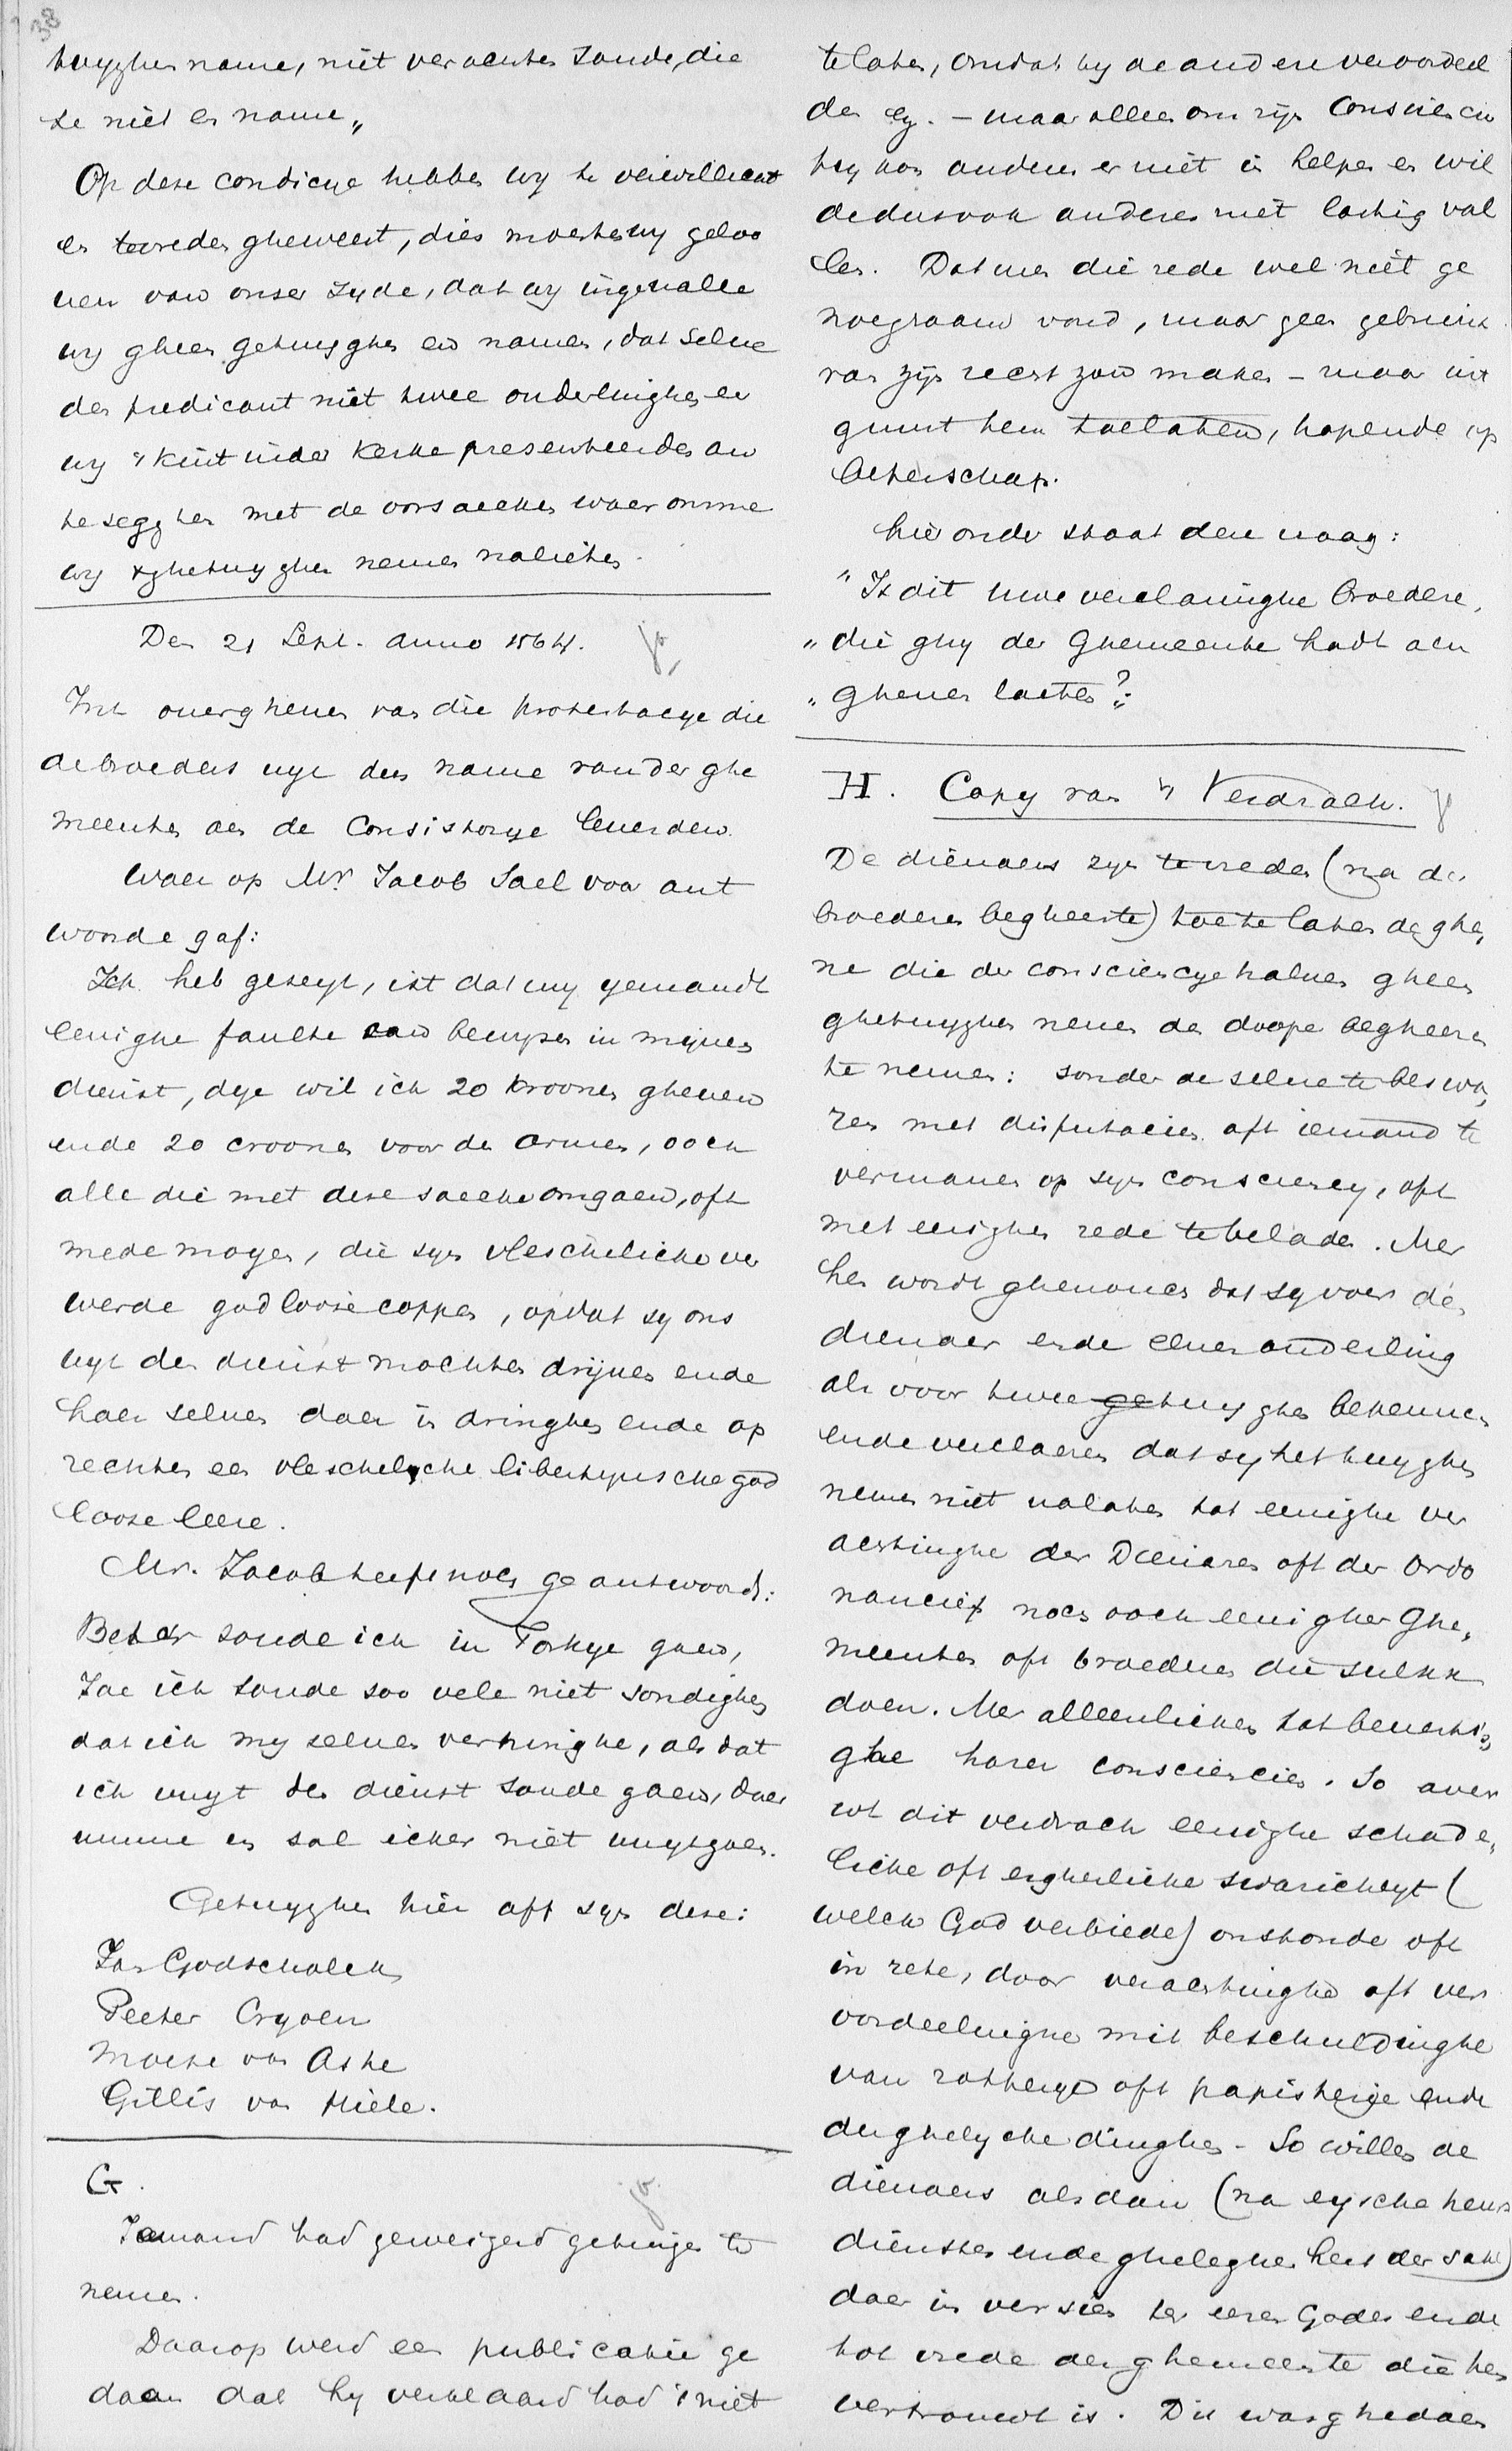 38
tuyghen name, niet verachten soude, die
se niet en name„
Op dese condicye hebben wy te verwilleant
en te vreden gheweest, dies moesten wy geloo
uen van onser zyde, dat wy ingevalle
wy gheen getuyghen en namen, dat selue
den predicant niet twee ouderlinghen en
wy 't kint inder kerke presenteerden aen
te segghen met de oorsaecken waer omme
wy 't ghetuyghen nemen nalieten.
Den 21 Sept. anno 1564. ja
Int ouergheuen van die protestacye die
de broeders uyt den name van der ghe
meenten aen de Consistorye leuerden.
Waer op Mr. Jacob Sael voor ant
woorde gaf:
Ick heb geseyt, ist dat my yemandt
eenighe faulte can bewysen in mynen
dienst, dye wil ick 20 kroonen gheuen
ende 20 croonen voor den armen, oock
alle die met dese saecke omgaen, oft
mede mogen, die syn vleschelicke ver
werde godloose coppen, opdat sy ons
uyt den dienst mochten drijuen ende
haer seluen daer in dringhen ende op
rechten een vleschelycke libertynsche god
loose leere.
Mr. Jacob heeft noch geantwoord:
Beter soude ick in Torkye gaen,
Jae ick soude soo vele niet sondighen
dat ick my seluen verhinghe, als dat
ick uuyt den dienst soude gaen, daer
umme en sal icker niet uuytgaen.
Getuyghen hier aff syn dese:
Jan Godschalck
Peeter Cryolen
Moese van Aste
Gillis van Hiele.
G. ja
Iemand had geweigerd getuigen te
nemen.
Daarop werd een publicatie ge
daan dat hy verklaard had 't niet
te laten, omdat hy de anderen veroordeel
de Ey. – maar alleen om zyn Consciencie
hy kon anderen er niet in helpen en wil
de dus ook anderen niet lastig val
len. Dat men die rede wel niet ge
noegzaam vond, maar geen gebruik
van zijn recht zou maken – maar uit
gunst hem toelaten, hopende op
beterschap.
hieronder staat deze vraag:
"Is dit uwe verclaringhe broedere,
„ die ghy der Ghemeente hadt aen
„ gheuen laeten?„
H. Copy van 't Verdrach. ja
De dienaers zyn te vreden (na der
broederen begheerte) toe te laten de ghe„
ne die der consciencye haluen gheen
ghetuyghen neuen den doope begheeren
te nemen: sonder de selue te beswa„
ren met disputacien, oft iemand te
vermanen op syn consciency, oft
met eenighen rede te beladen. Mer
hen wordt ghenouch dat sy voer den
dienaer ende eenen anderling
als voor twee getuyghen bekennen
ende verclaeren dat sy het tuyghen
nemen niet nalaten tot eenighe ver
achtinghe der Dienaren oft der Ordo
nancien noch oock eenigher Ghe„
meenten oft broederen die sulckx
doen. Mer alleenlicken tot bevesti„
ghe harer consciencien. So auer
wt dit verdrach eenighe schade„
licke oft ergherlicke swaricheyt (
welck God verbiede) onstonde oft
in rese, door verachtinghe oft ver
oordeelinghe mit beschuldinghe
van rotterye oft papisterije ende
derghelycke dinghen – So willen de
dienaers alsdan (na eysche heurs
dienstes ende ghelegenheit der sake)
daer in versien ter eeren Godes ende
tot vrede der ghemeente die hen
vertrouwt is. Dit was ghedaen